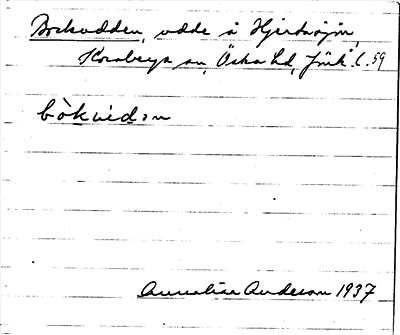 Bockudden, udde i Hjertasjön,
Korsberga sn, Östra hd, Jönk. l. 59
bòkʉdən
Annalisa Anderson 1937